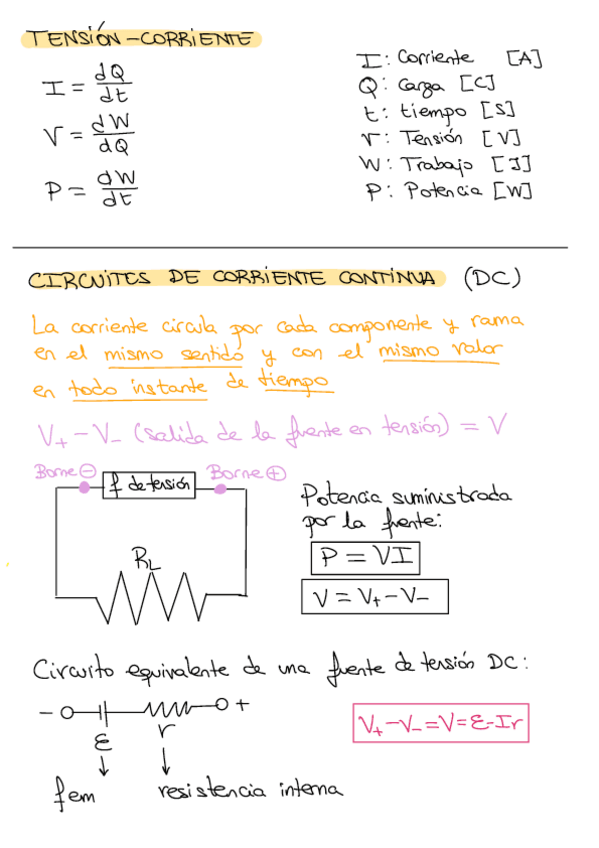 TENSIÓN-CORRIENTE
I = dQ/dt
V = dW/dQ
P = dW/dt
I: Corriente [A]
Q: Carga [C]
t: tiempo [S]
V: Tensión [V]
W: Trabajo [J]
P: Potencia [W]
CIRCUITES DE CORRIENTE CONTINUA (DC)
La corriente circula por cada componente y rama
en el mismo sentido y con el mismo valor
en todo instante de tiempo
V+ - V- (salida de la fuente en tensión) = V
Borne ⊖ f de tensión Borne ⊕
RL
Potencia suministrada
por la fuente:
P = VI
V = V+ - V-
Circuito equivalente de una fuente de tensión DC:
- +
ε r
V+ - V- = V = ε - Ir
fem resistencia interna